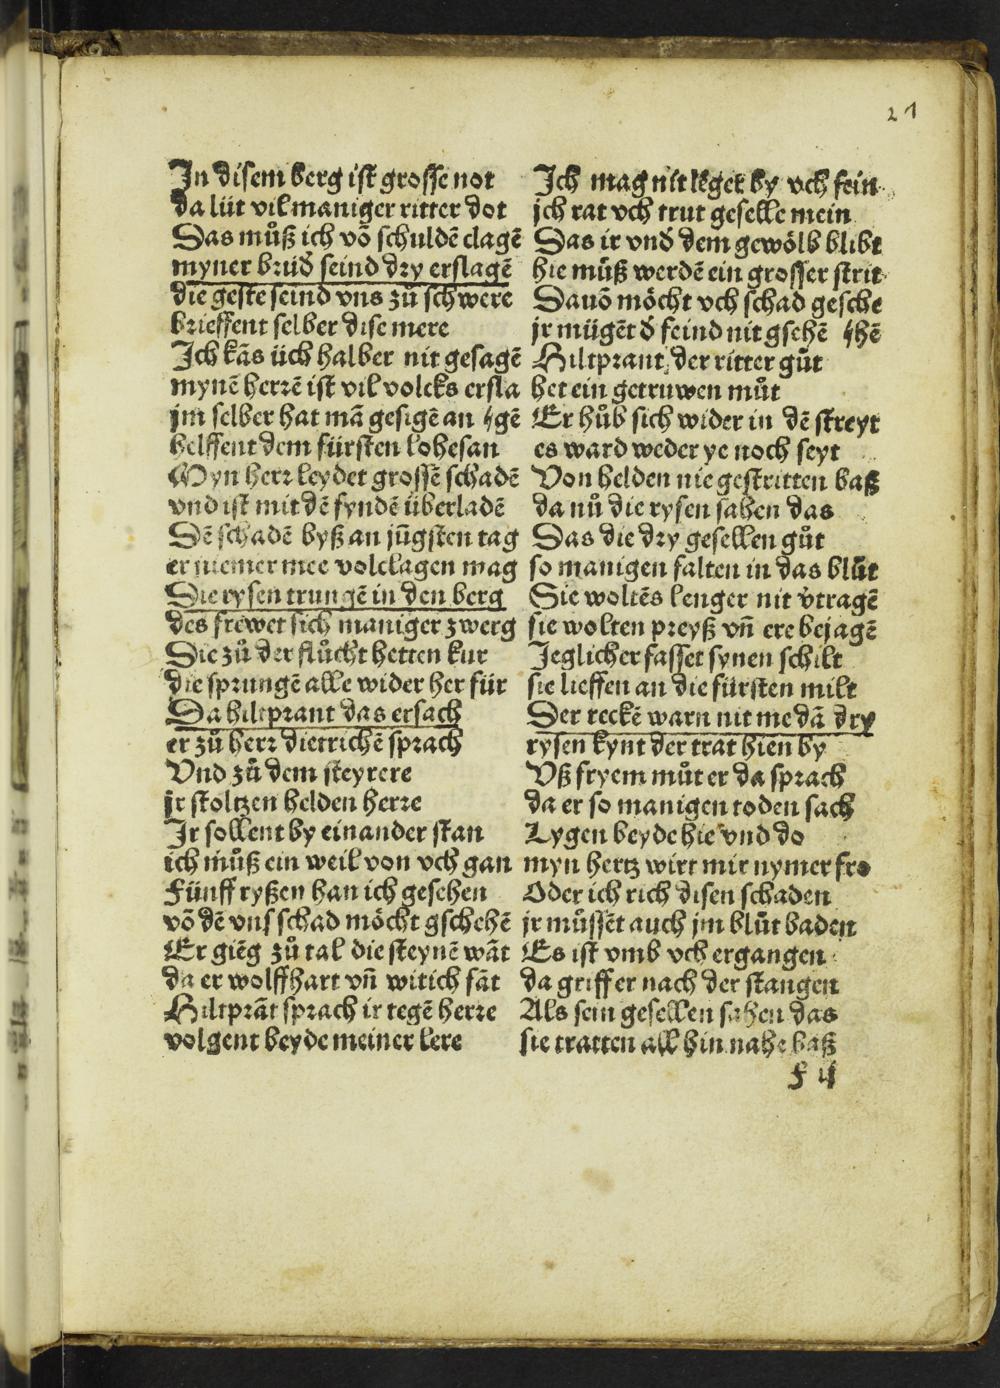 21
In disem berg ist grosse not
da lüt vil maniger ritter dot
Das můß ich vō schuldē clagē
myner brůd̛ seind dry erslagē
die geste seind vns zů schwere
brieffent selber dise mere
Ich kās üch halber nit gesagē
mynē herrē ist vil volcks ersla
jm selber hat mā gesigē an gē
helffent dem fürsten lobesan
Myn herr leydet grossē schadē
vnd ist mit dē fyndē überladē
Dē schadē byß an jūgsten tag
er niemer mee volclagen mag
Die rysen trungē in den berg
des frewet sich maniger zwerg
Die zů der flůcht hetten kur
die sprungē alle wider her für
Da hiltprant das ersach
er zů herr dietrichē sprach
Vnd zů dem steyrere
jr stoltzen helden herre
Ir sollent by einander stan
ich můß ein weil von vch gan
Fünff ryßen han ich gesehen
vō dē vns schad möcht gschehē
Er giēg zů tal die steynē wāt
da er wolffhart vn̄ witich fāt
Hiltprāt sprach ir tegē herre
volgent beyde meiner lere
Ich mag nit leger by vch sein
jch rat vch trut geselle mein
Das ir vnd̛ dem gewölb blibt
hie můß werdē ein grosser strit
Dauō möcht vch schad gesche
jr mügēt d̛ feind nit gsehē hē
Hiltprant der ritter gůt
het ein getruwen můt
Er hůb sich wider in dē streyt
es ward weder ye noch seyt
Von helden nie gestritten baß
da nů die rysen sahen das
Das die dry gesellen gůt
so manigen falten in das blůt
Sie woltēs lenger nit v̓tragē
sie wolten preyß vn̄ ere bejagē
Jeglicher fasset synen schilt
sie lieffen an die fürsten milt
Der reckē warn nit me dā dry
rysen kynt der trat hien by
Vß fryem můt er da sprach
da er so manigen toden sach
Lygen beyde hie vnd do
myn hertz wirt mir nymer fro
Oder ich rich disen schaden
jr můssēt auch jm blůt baden
Es ist vmb vch ergangen
da griff er nach der stangen
Als sein gesellen sahen das
sie tratten all hin nahe baß
f ij